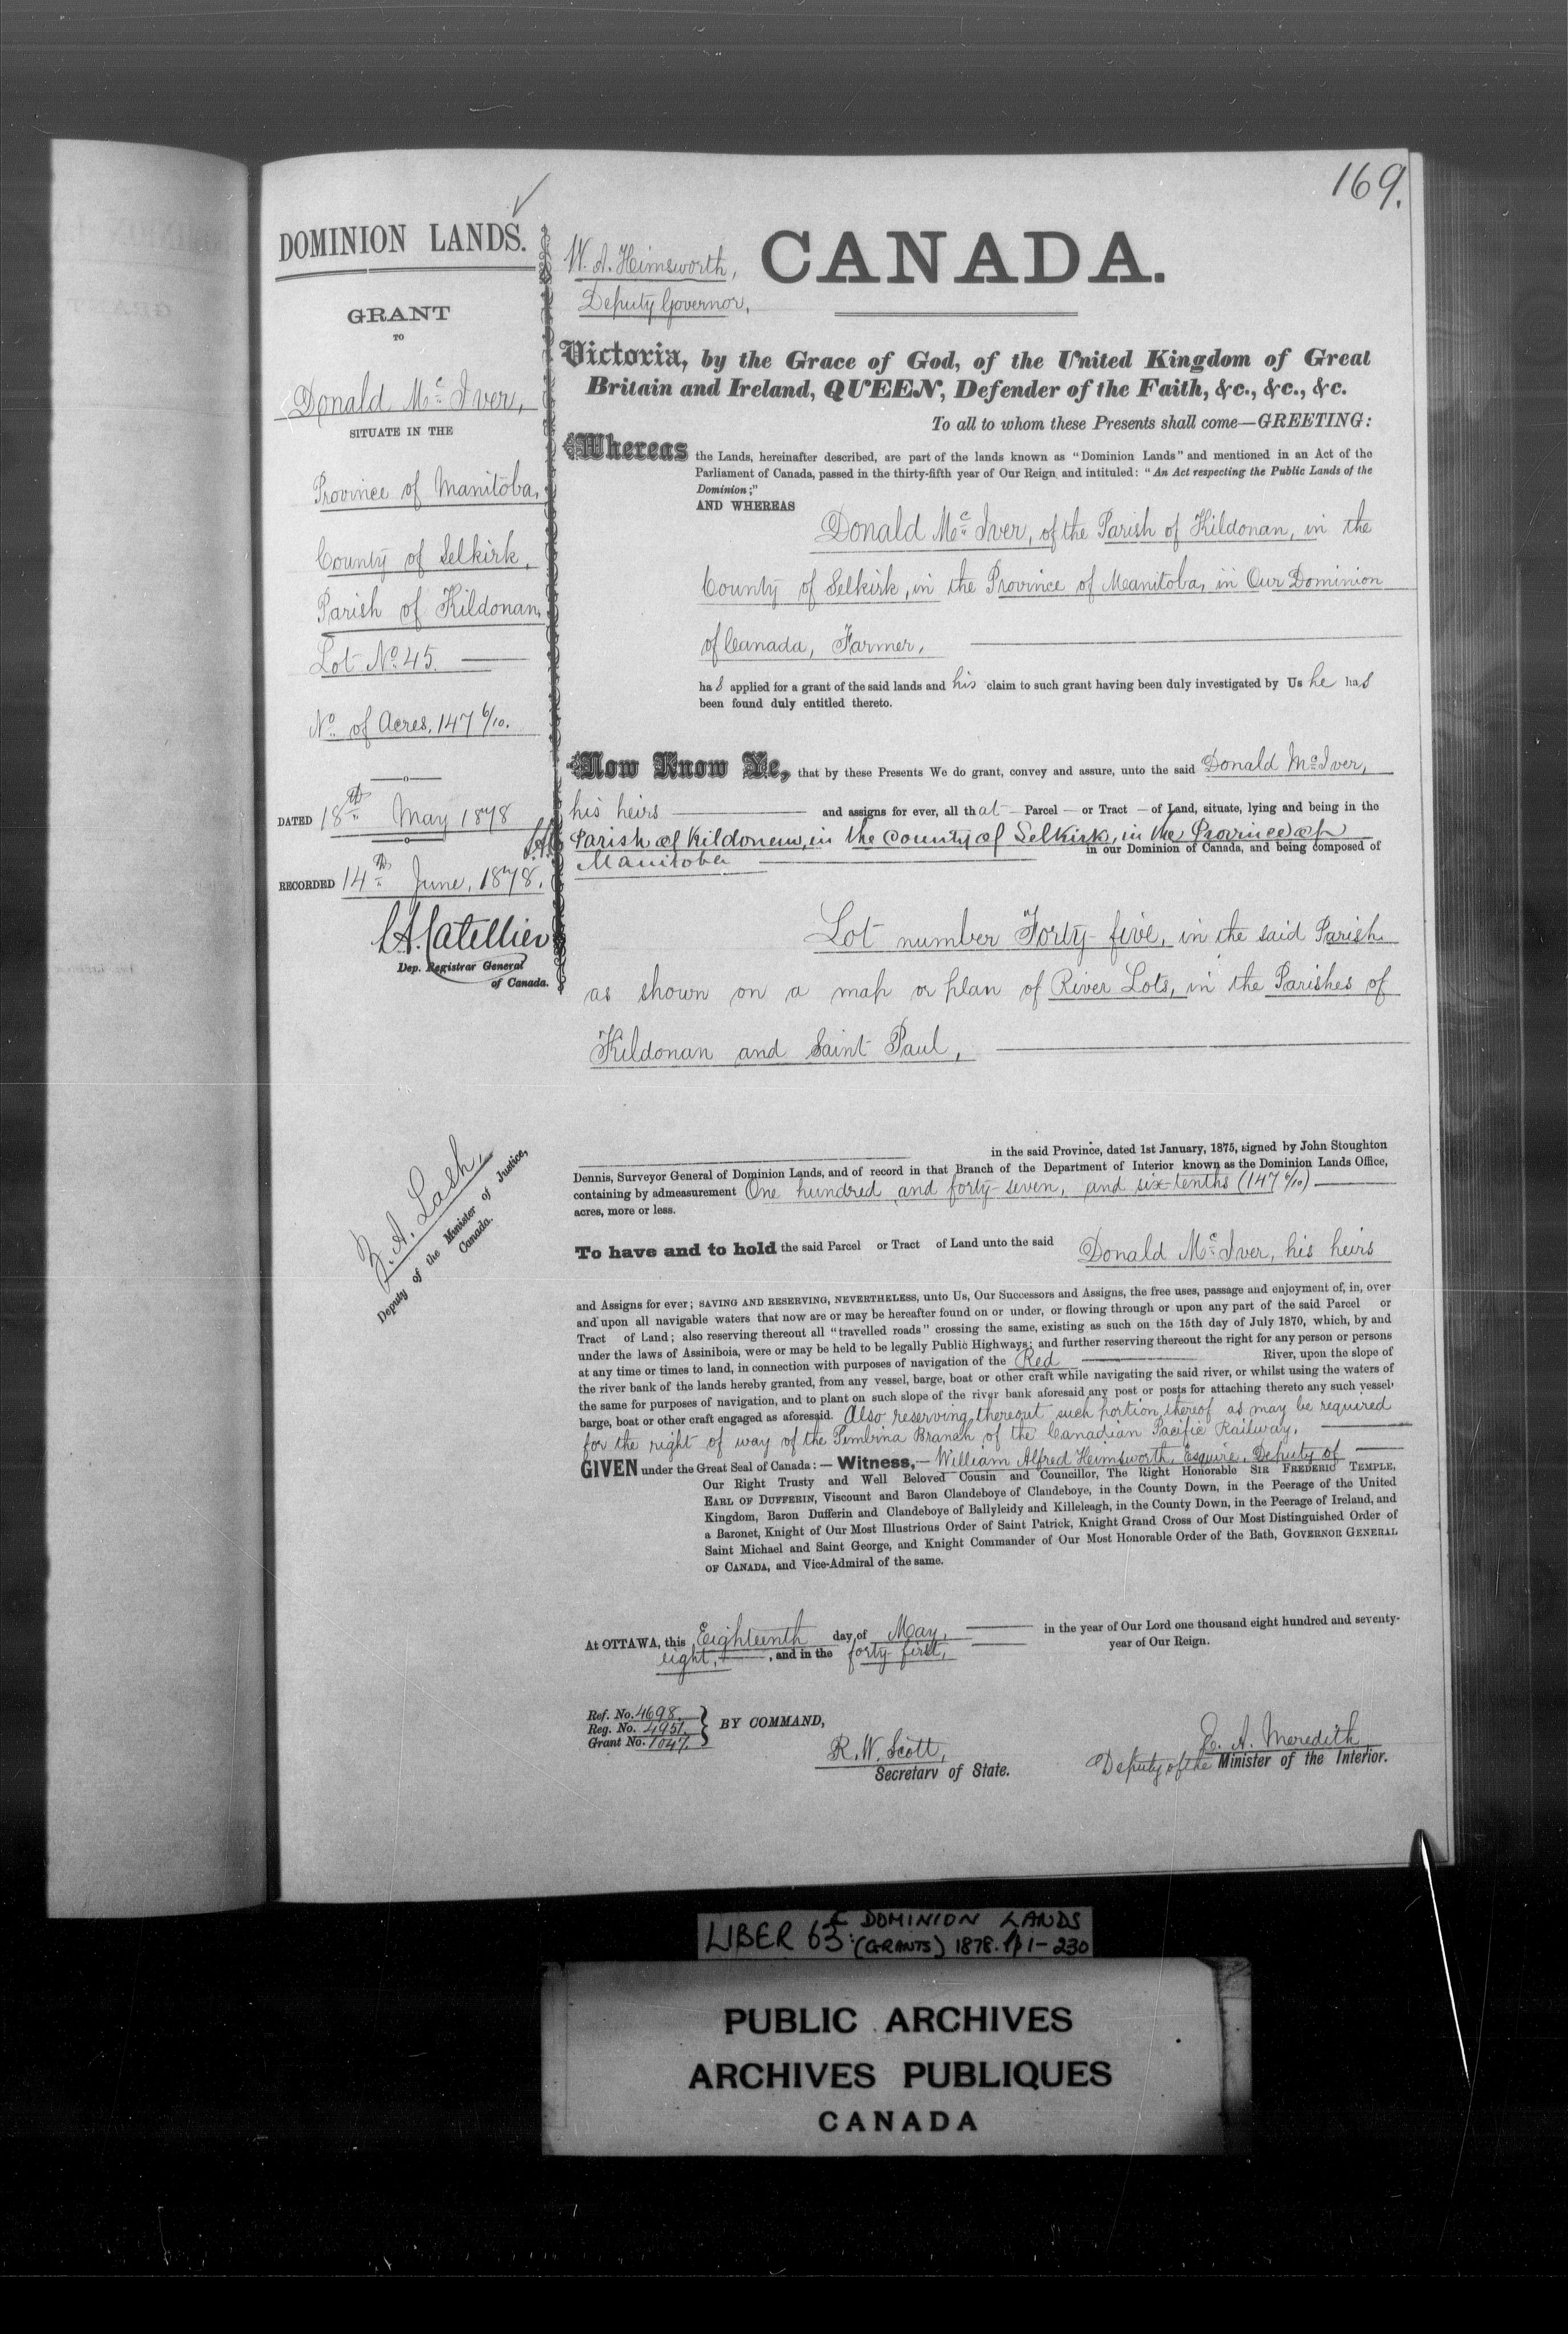 169.
DOMINION LANDS.
GRANT
TO
Donald McIver,
SITUATE IN THE
Province of Manitoba,
County of Selkirk,
Parish of Kildonan,
Lot No. 45.
No. of Acres, 147 6/10.
DATED 18th May 1878
RECORDED 14th June, 1878.
Dep. Registrar General
of Canada.
Z. A. Lash,
Deputy of the Minister of Justice,
Canada.
W. A. Himsworth,
Deputy Governor,
CANADA.
Victoria, by the Grace of God, of the United Kingdom of Great
Britain and Ireland, QUEEN, Defender of the Faith, &c., &c., &c.
To all to whom these Presents shall come—GREETING:
Whereas the Lands, hereinafter described, are part of the lands known as "Dominion Lands" and mentioned in an Act of the
Parliament of Canada, passed in the thirty-fifth year of Our Reign and intituled: "An Act respecting the Public Lands of the
Dominion;"
AND WHEREAS
Donald McIver, of the Parish of Kildonan, in the
County of Selkirk, in the Province of Manitoba, in Our Dominion
of Canada, Farmer,
has applied for a grant of the said lands and his claim to such grant having been duly investigated by Us he has
been found duly entitled thereto.
Now Know Ye, that by these Presents We do grant, convey and assure, unto the said Donald McIver,
his heirs and assigns for ever, all that Parcel or Tract of Land, situate, lying and being in the
Parish of Kildonan, in the County of Selkirk, in the Province of
Manitoba in our Dominion of Canada, and being composed of
Lot number Forty-five, in the said Parish
as shown on a map or plan of River Lots, in the Parishes of
Kildonan and Saint Paul,
in the said Province, dated 1st January, 1875, signed by John Stoughton
Dennis, Surveyor General of Dominion Lands, and of record in that Branch of the Department of Interior known as the Dominion Lands Office,
containing by admeasurement One hundred and forty-seven, and six-tenths (147 6/10)
acres, more or less.
To have and to hold the said Parcel or Tract of Land unto the said Donald McIver, his heirs
and Assigns for ever; SAVING AND RESERVING, NEVERTHELESS, unto Us, Our Successors and Assigns, the free uses, passage and enjoyment of, in, over
and upon all navigable waters that now are or may be hereafter found on or under, or flowing through or upon any part of the said Parcel or
Tract of Land; also reserving thereout all "travelled roads" crossing the same, existing as such on the 15th day of July 1870, which, by and
under the laws of Assiniboia, were or may be held to be legally Public Highways; and further reserving thereout the right for any person or persons
at any time or times to land, in connection with purposes of navigation of the Red River, upon the slope of
the river bank of the lands hereby granted, from any vessel, barge, boat or other craft while navigating the said river, or whilst using the waters of
the same for purposes of navigation, and to plant on such slope of the river bank aforesaid any post or posts for attaching thereto any such vessel,
barge, boat or other craft engaged as aforesaid. Also reserving thereout such portion thereof as may be required
for the right of way of the Pembina Branch of the Canadian Pacific Railway.
GIVEN under the Great Seal of Canada:—Witness,—William Alfred Himsworth, Esquire, Deputy of
Our Right Trusty and Well Beloved Cousin and Councillor, The Right Honorable SIR FREDERIC TEMPLE,
EARL OF DUFFERIN, Viscount and Baron Clandeboye of Clandeboye, in the County Down, in the Peerage of the United
Kingdom, Baron Dufferin and Clandeboye of Ballyleidy and Killeleagh, in the County Down, in the Peerage of Ireland, and
a Baronet, Knight of Our Most Illustrious Order of Saint Patrick, Knight Grand Cross of Our Most Distinguished Order of
Saint Michael and Saint George, and Knight Commander of Our Most Honorable Order of the Bath, GOVERNOR GENERAL
OF CANADA, and Vice-Admiral of the same.
At OTTAWA, this Eighteenth day of May, in the year of Our Lord one thousand eight hundred and seventy-
eight, and in the forty-first, year of Our Reign.
Ref. No. 4698.
Reg. No. 4951.
Grant No. 1047.
BY COMMAND,
R. W. Scott,
Secretary of State.
E. A. Meredith
Deputy of the Minister of the Interior.
LIBER 63: DOMINION LANDS
(GRANTS) 1878. pp 1-230
PUBLIC ARCHIVES
ARCHIVES PUBLIQUES
CANADA